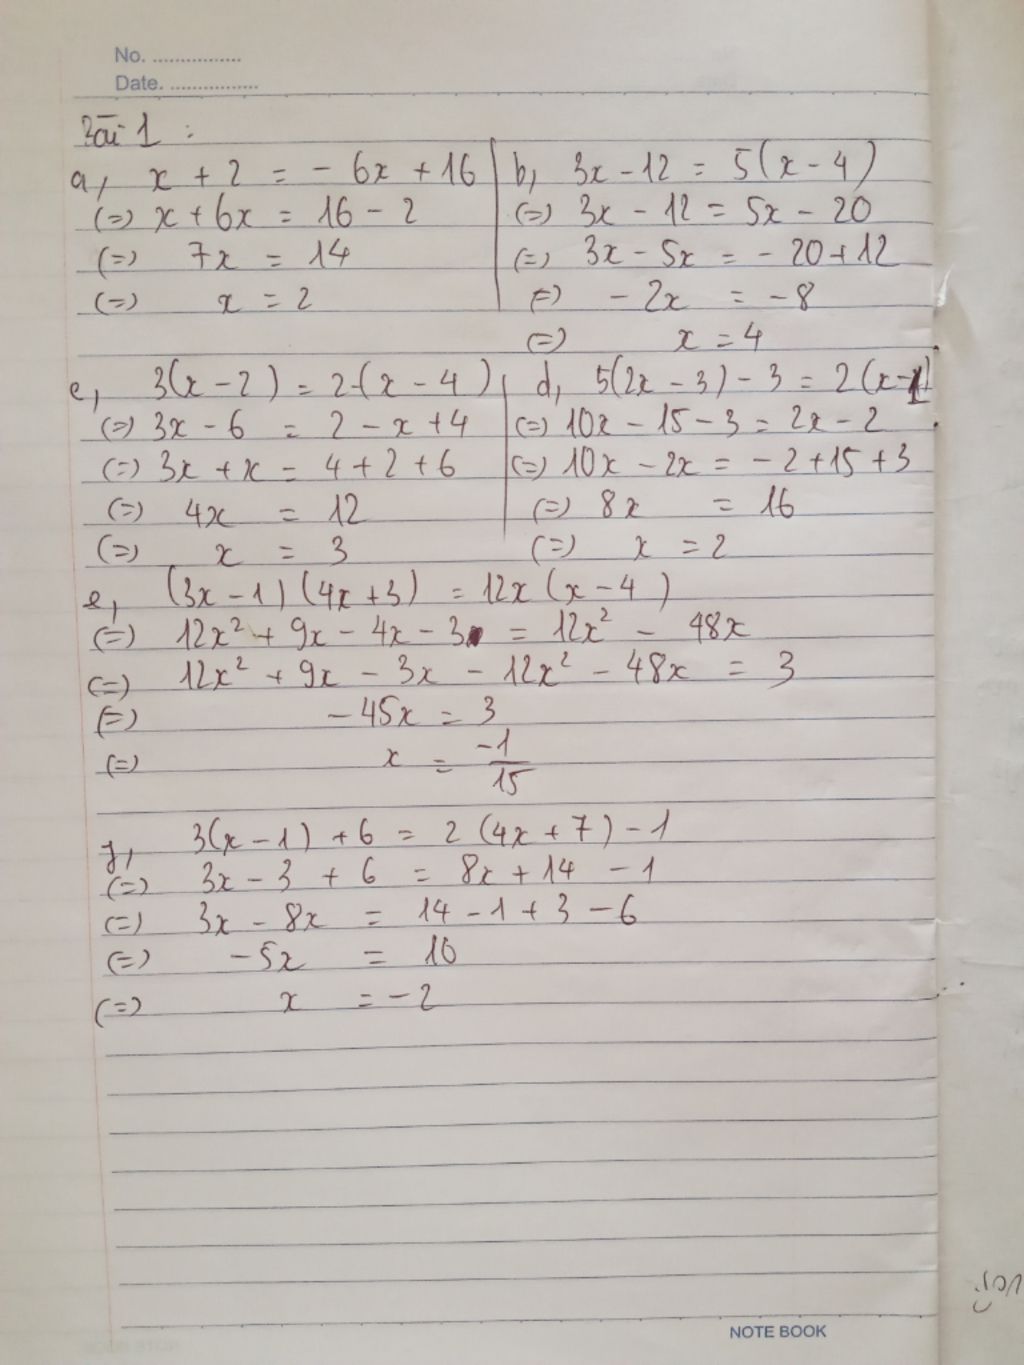 No. ................
Date. ................
Bài 1 :
a, x + 2 = - 6x + 16
(=) x + 6x = 16 - 2
(=) 7x = 14
(=) x = 2
b, 3x - 12 = 5(x - 4)
(=) 3x - 12 = 5x - 20
(=) 3x - 5x = - 20 + 12
(=) - 2x = - 8
(=) x = 4
c, 3(x - 2) = 2-(x - 4)
(=) 3x - 6 = 2 - x + 4
(=) 3x + x = 4 + 2 + 6
(=) 4x = 12
(=) x = 3
d, 5(2x - 3) - 3 = 2(x-1)
(=) 10x - 15 - 3 = 2x - 2
(=) 10x - 2x = - 2 + 15 + 3
(=) 8x = 16
(=) x = 2
e, (3x - 1) (4x + 3) = 12x (x - 4)
(=) 12x² + 9x - 4x - 3 = 12x² - 48x
(=) 12x² + 9x - 3x - 12x² - 48x = 3
(=) - 45x = 3
(=) x = -1/15
f, 3(x - 1) + 6 = 2 (4x + 7) - 1
(=) 3x - 3 + 6 = 8x + 14 - 1
(=) 3x - 8x = 14 - 1 + 3 - 6
(=) - 5x = 10
(=) x = - 2
NOTE BOOK